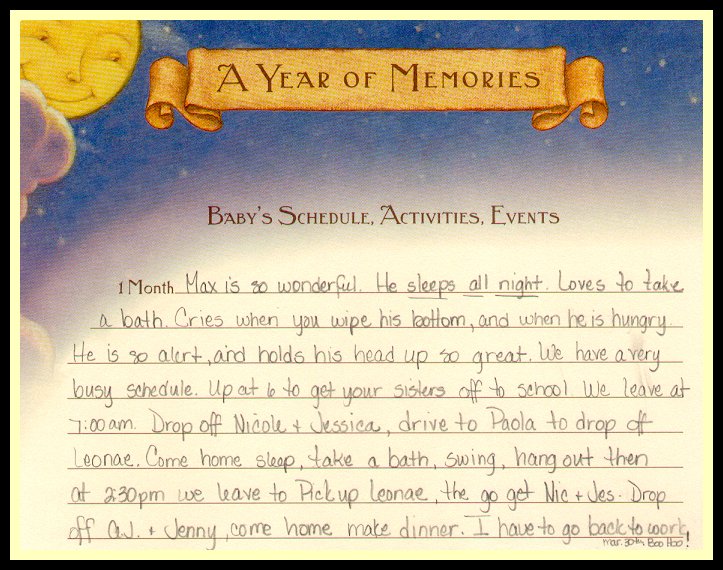 A YEAR OF MEMORIES
BABY'S SCHEDULE, ACTIVITIES, EVENTS
1 MONTH Max is so wonderful. He sleeps all night. Loves to take
a bath. Cries when you wipe his bottom, and when he is hungry
He is so alert, and holds his head up so great. We have a very
busy schedule. Up at 6 to get your sisters off to school. We leave at
7:00 am. Drop off Nicole + Jessica, drive to Paola to drop off
Leonae. Come home sleep, take a bath, swing, hang out then
at 2:30pm we leave to Pick up Leonae, the go get Nic + Jes. Drop
off A.J. + Jenny, come home make dinner. I have to go back to work,
mar. 30th Boo Hoo!